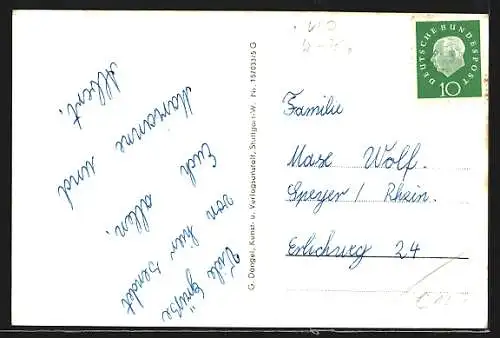 Viele Grüße
von hier sendet
Euch allen,
Marianne und
Albert.
G. Dangel, Kunst- u. Verlagsanstalt, Stuttgart-W. Nr. 15/0335 G
DEUTSCHE BUNDESPOST
10
Familie
Mase Wolf.
Speyer / Rhein.
Erlichweg 24